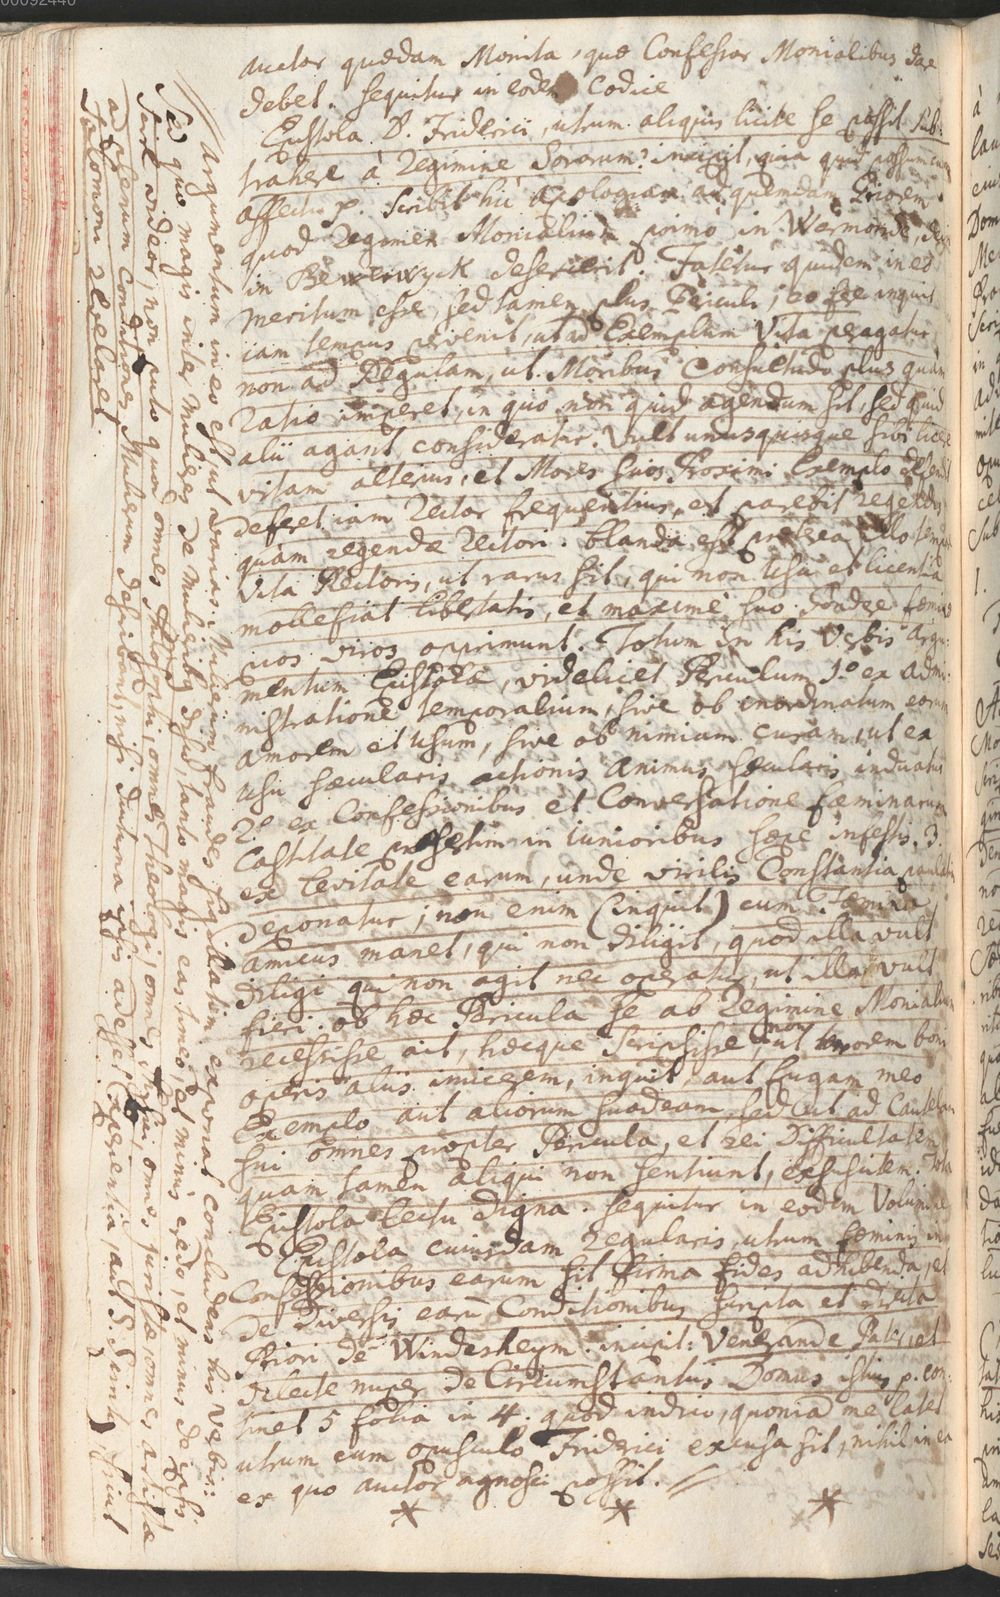 00092440
auctor quædam Monita, quæ Confessar Monialibus dare
debet. sequitur in eodem Codice
Epistola D. Friderici, utrum aliquis licite se possit sub-
trahere à Regimine Sororum? incipit, quia quid possum cum
affectu p. scribit hic Apologiam ad quemdam Priorem
quod Regimen Monialium primò in Warmonde,
in Bewerwyck deseruerit. Fatetur quidem in eo
meritum esse, sed tamen plus Periculi, eo fee inquit
iam tempus pervenit, ut ad Exemplum Vita peragatur
non ad Regulam, ut Moribus Consultudo plus quam
Ratio imperet, in quo non quid agendum sit, sed quid
alii agant consideratur. Vult unusquisque sibi licere
vitam alterius, et Mores suos Proximi Exemplo defendit
deferet iam Rector frequentius, et parebit regendis
quàm regendæ Rectori. blanda est præterea illo tempore
Vita Rectoris, ut rarus sit, qui non usu et licentia
mollefiat libertatis, et maximè suo pondere fæmi-
nos viros opprimunt. Totum in his Verbis argu-
mentum Epistolæ, videlicet Periculum 1º ex admi-
nistratione temporalium, sive ob inordinatum eorum
amorem et usum, sive ob nimiam curam, ut ex
usu sæcularis actionis animus sæcularis induatur
2º ex Confessionibus et Conversatione fæminarum
Castitate præsertim in iunioribus sæpe infestis. 3.
ex levitate earum, unde virilis Constantia paulatim
deponatur; non enim (inquit) cum Fæmina
amicus manet, qui non diligit, quod illa vult
diligi qui non agit nec operatur, ut illa vult
fieri. ob hæc Pericula se ab Regimine Monialium
recessisse ait, hæcque scripsisse, ut non timorem boni
operis aliis inicerem, inquit, aut fugam meo
Exemplo aut aliorum suadeam, sed ut ad Cautelam
sui omnes propter Pericula, et rei Difficultatem
quam tamen aliqui non sentiunt, exsuscitem. Tota
Epistola lectu digna. sequitur in eodem Volumine
Epistola cuiusdam Regularis utrum fæminis in
Confessionibus earum sit firma fides adhibenda, et
de Diversis earu Conditionibus scripta et directa
Priori de Windesheym. incipit: Venerande Pater et
dilecte nuper de Circumstantiis Domus istius p. con-
tinet 5 folia in 4. quod indico, quonia me latet
utrum cum opusculo Friderici excusa sit, nihil in ea
ex quo auctor agnosci possit.
* * *
Argumentum in eo est ut varias Mulierum fraudes sigillatim exponat concludens his verbis:
Sed quo magis inter mulieres de mulieribus desud, tanto magis eas timeo, et minus credo, et minus de ipsis
scire ordeor, non puto quod omnes Philosophi, omnes Theologi, omnes Medici, omnes juristæ, omnes artistæ
ad plenum Conditiones Mulierum describant, nisi diutina ipsis adesset Experientia, aut S. Spiritus, sicut
Salomoni Revelaret.